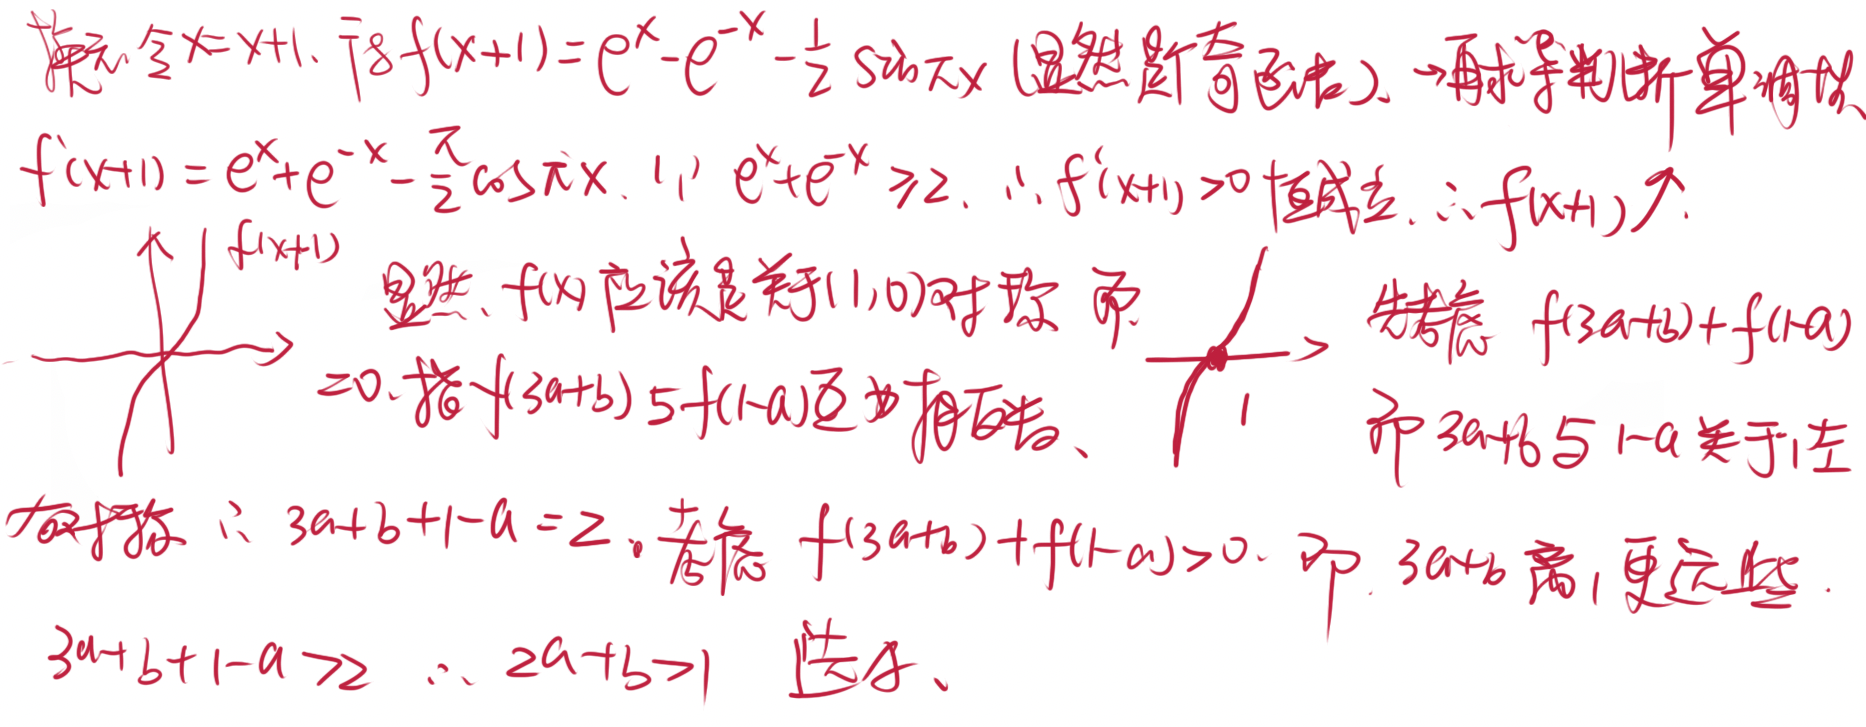 换元令x=x+1、可得f(x+1)=e^x-e^{-x}-\frac{1}{2}sinπx(显然是个奇函数)、→再求导判断单调性
f'(x+1)=e^x+e^{-x}-\frac{π}{2}cosπx. ∵ e^x+e^{-x}≥2. ∴f'(x+1)>0恒成立. ∴f(x+1)↗.
f(x+1)
显然、f(x)应该是关于(1,0)对称 即
1
先考虑 f(3a+b)+f(1-a)
=0. 指f(3a+b)与f(1-a)互为相反数、
即3a+b与1-a关于1左
右对称 ∴ 3a+b+1-a=2. 考虑 f(3a+b)+f(1-a)>0. 即 3a+b离1更远些.
3a+b+1-a>2 ∴ 2a+b>1 选A、